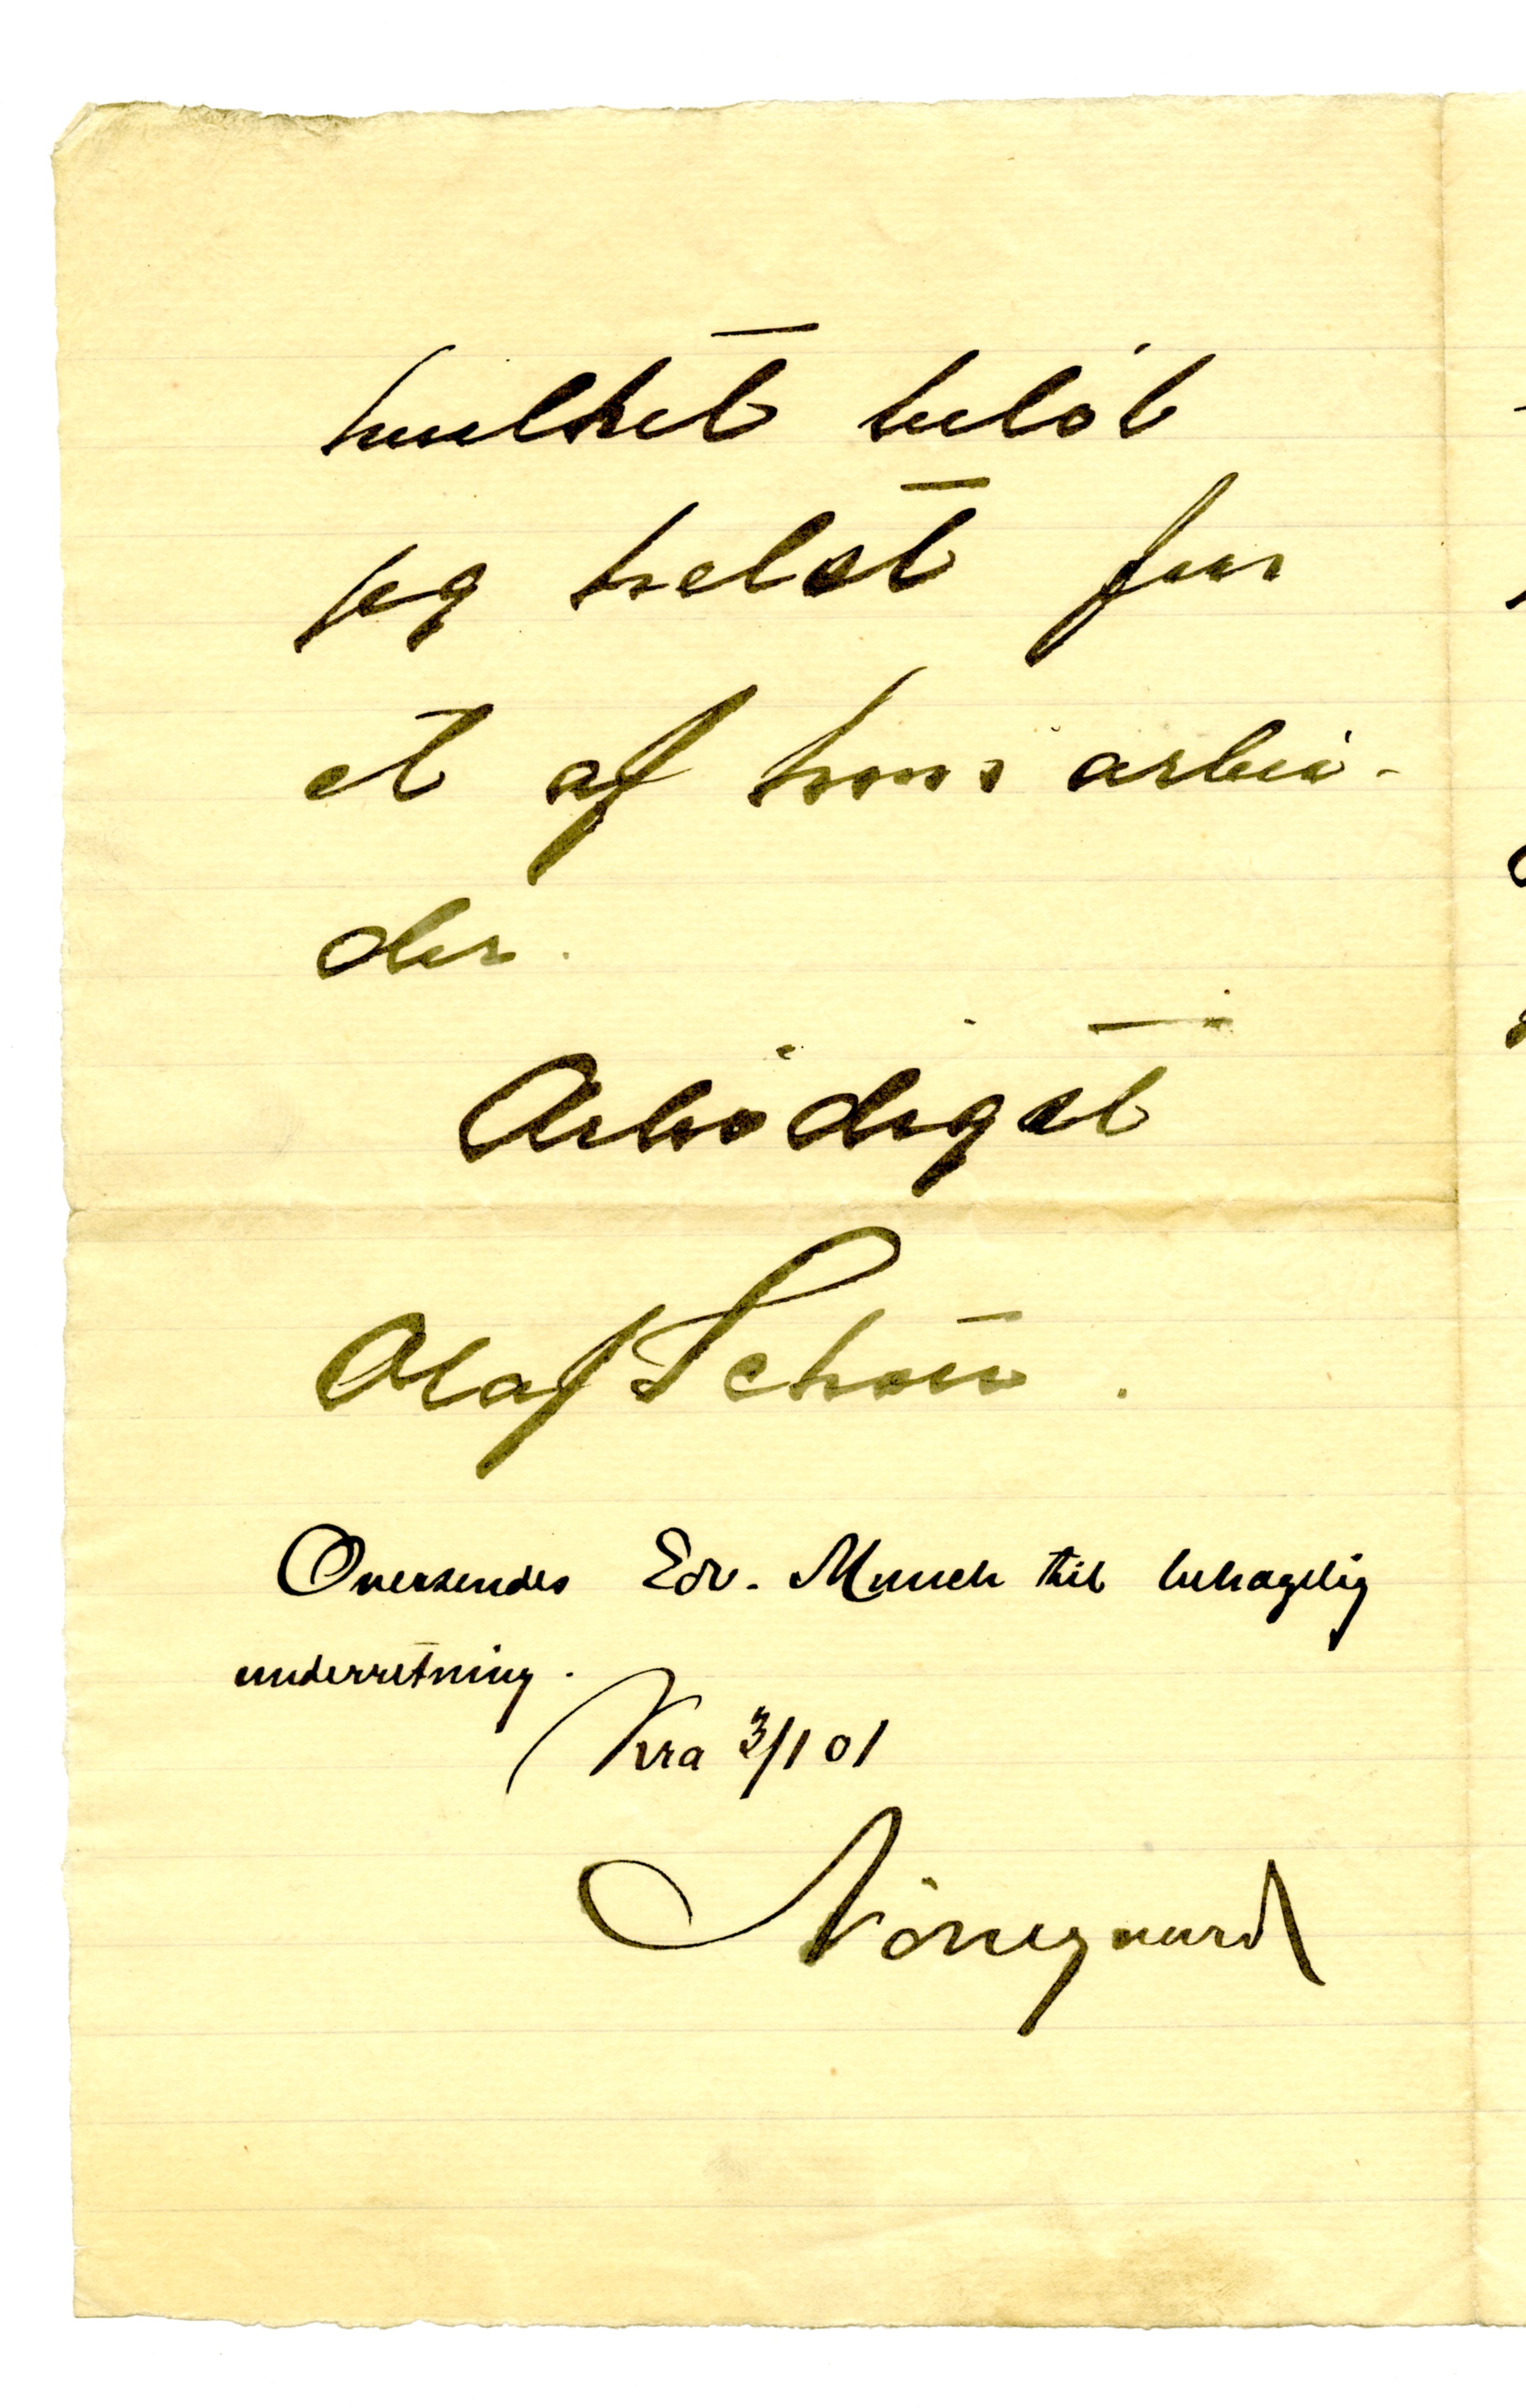 hvilket beløb
jeg helst faar
et af hans arbei-
der.
Ærbødigst
Olaf Schou.
Oversendes Edv. Munch til behagelig
underretning.
Kra 3/1 01
Nørregaard